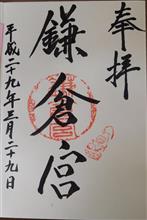 奉拝
鎌倉宮
平成二十九年三月二十九日